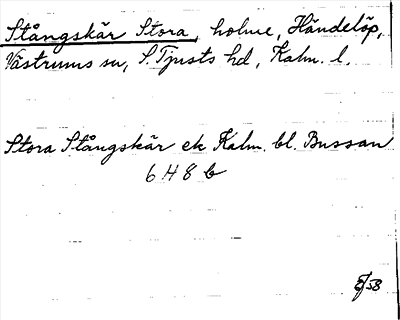 Stångskär Stora, holme, Händelöp,
Västrums sn, S. Tjusts hd, Kalm. l.
Stora Stångskär ek Kalm. bl. Bussan
6 H 8 b